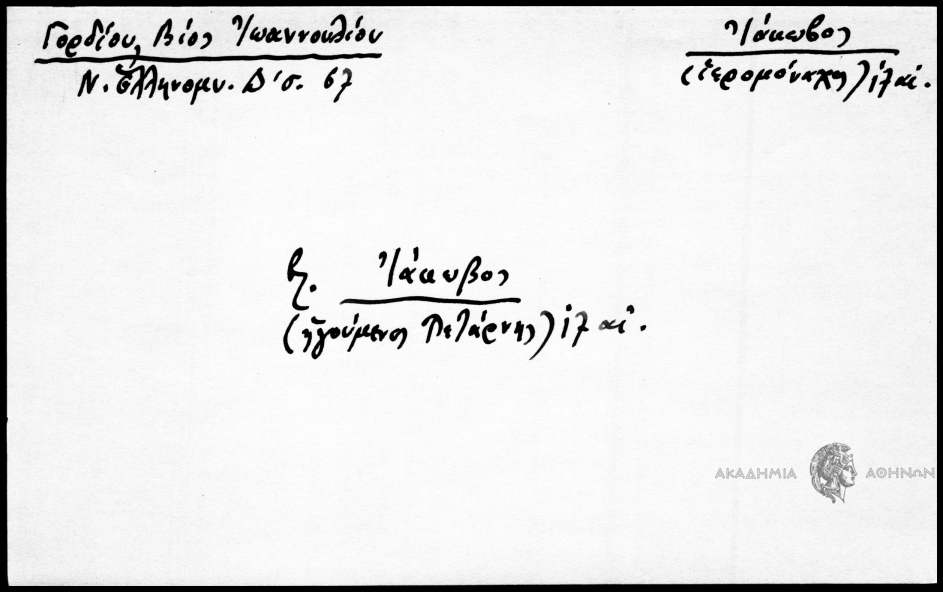 Γορδίου, Βίος Ἰωαννουλίου
Ν. Ἑλληνομν. Δ' σ. 67
Ἰάκωβος
(ἱερομόναχος) ιζ αἰ.
βλ. Ἰάκωβος
(ἡγούμενος Πετάρνης) ιζ αἰ.
ΑΚΑΔΗΜΙΑ ΑΘΗΝΩΝ